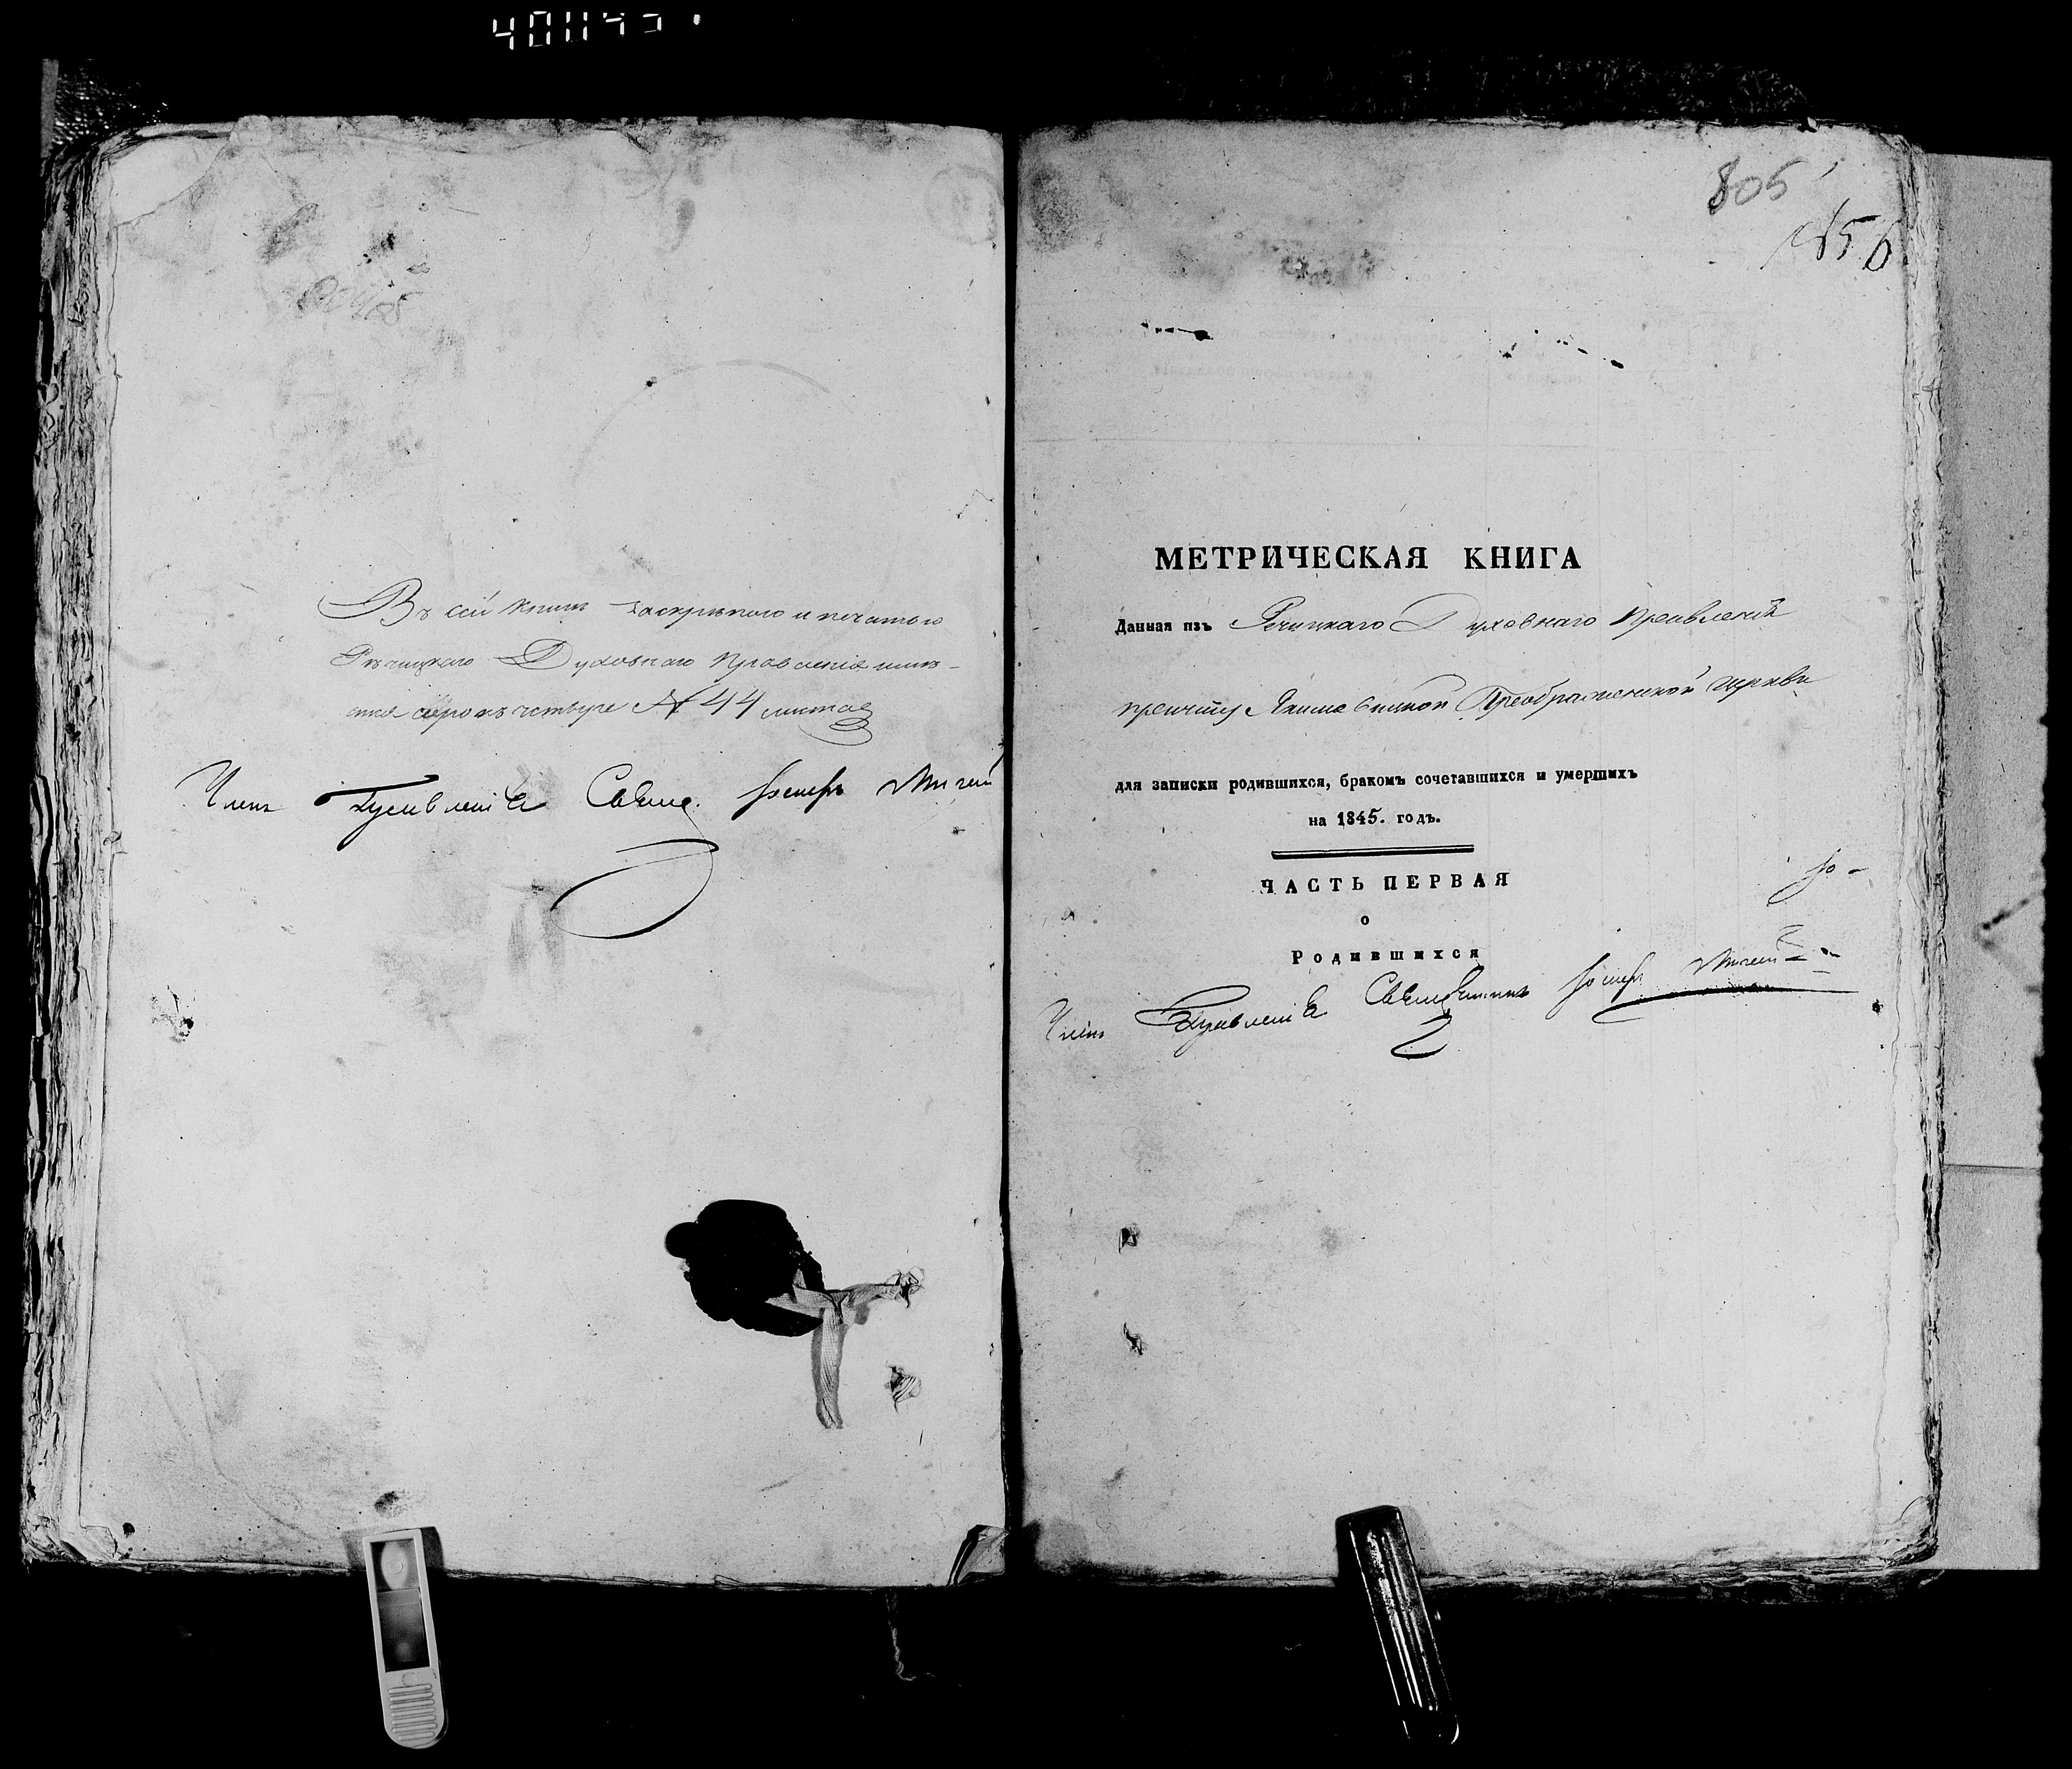 401143
Въ сей книгѣ за скрѣпою и печатью
Рѣчицкаго Духовнаго Правленія
сорокъ четыре № 44 листа
Членъ Правленія Свящ.
805
МЕТРИЧЕСКАЯ КНИГА
Данная изъ Речицкаго Духовнаго Правленія
причту Якимовицкой Преображенской церкви
для записки родившихся, бракомъ сочетавшихся и умершихъ
на 1845. годъ.
ЧАСТЬ ПЕРВАЯ
о
Родившихся
Членъ Правленія Священникъ